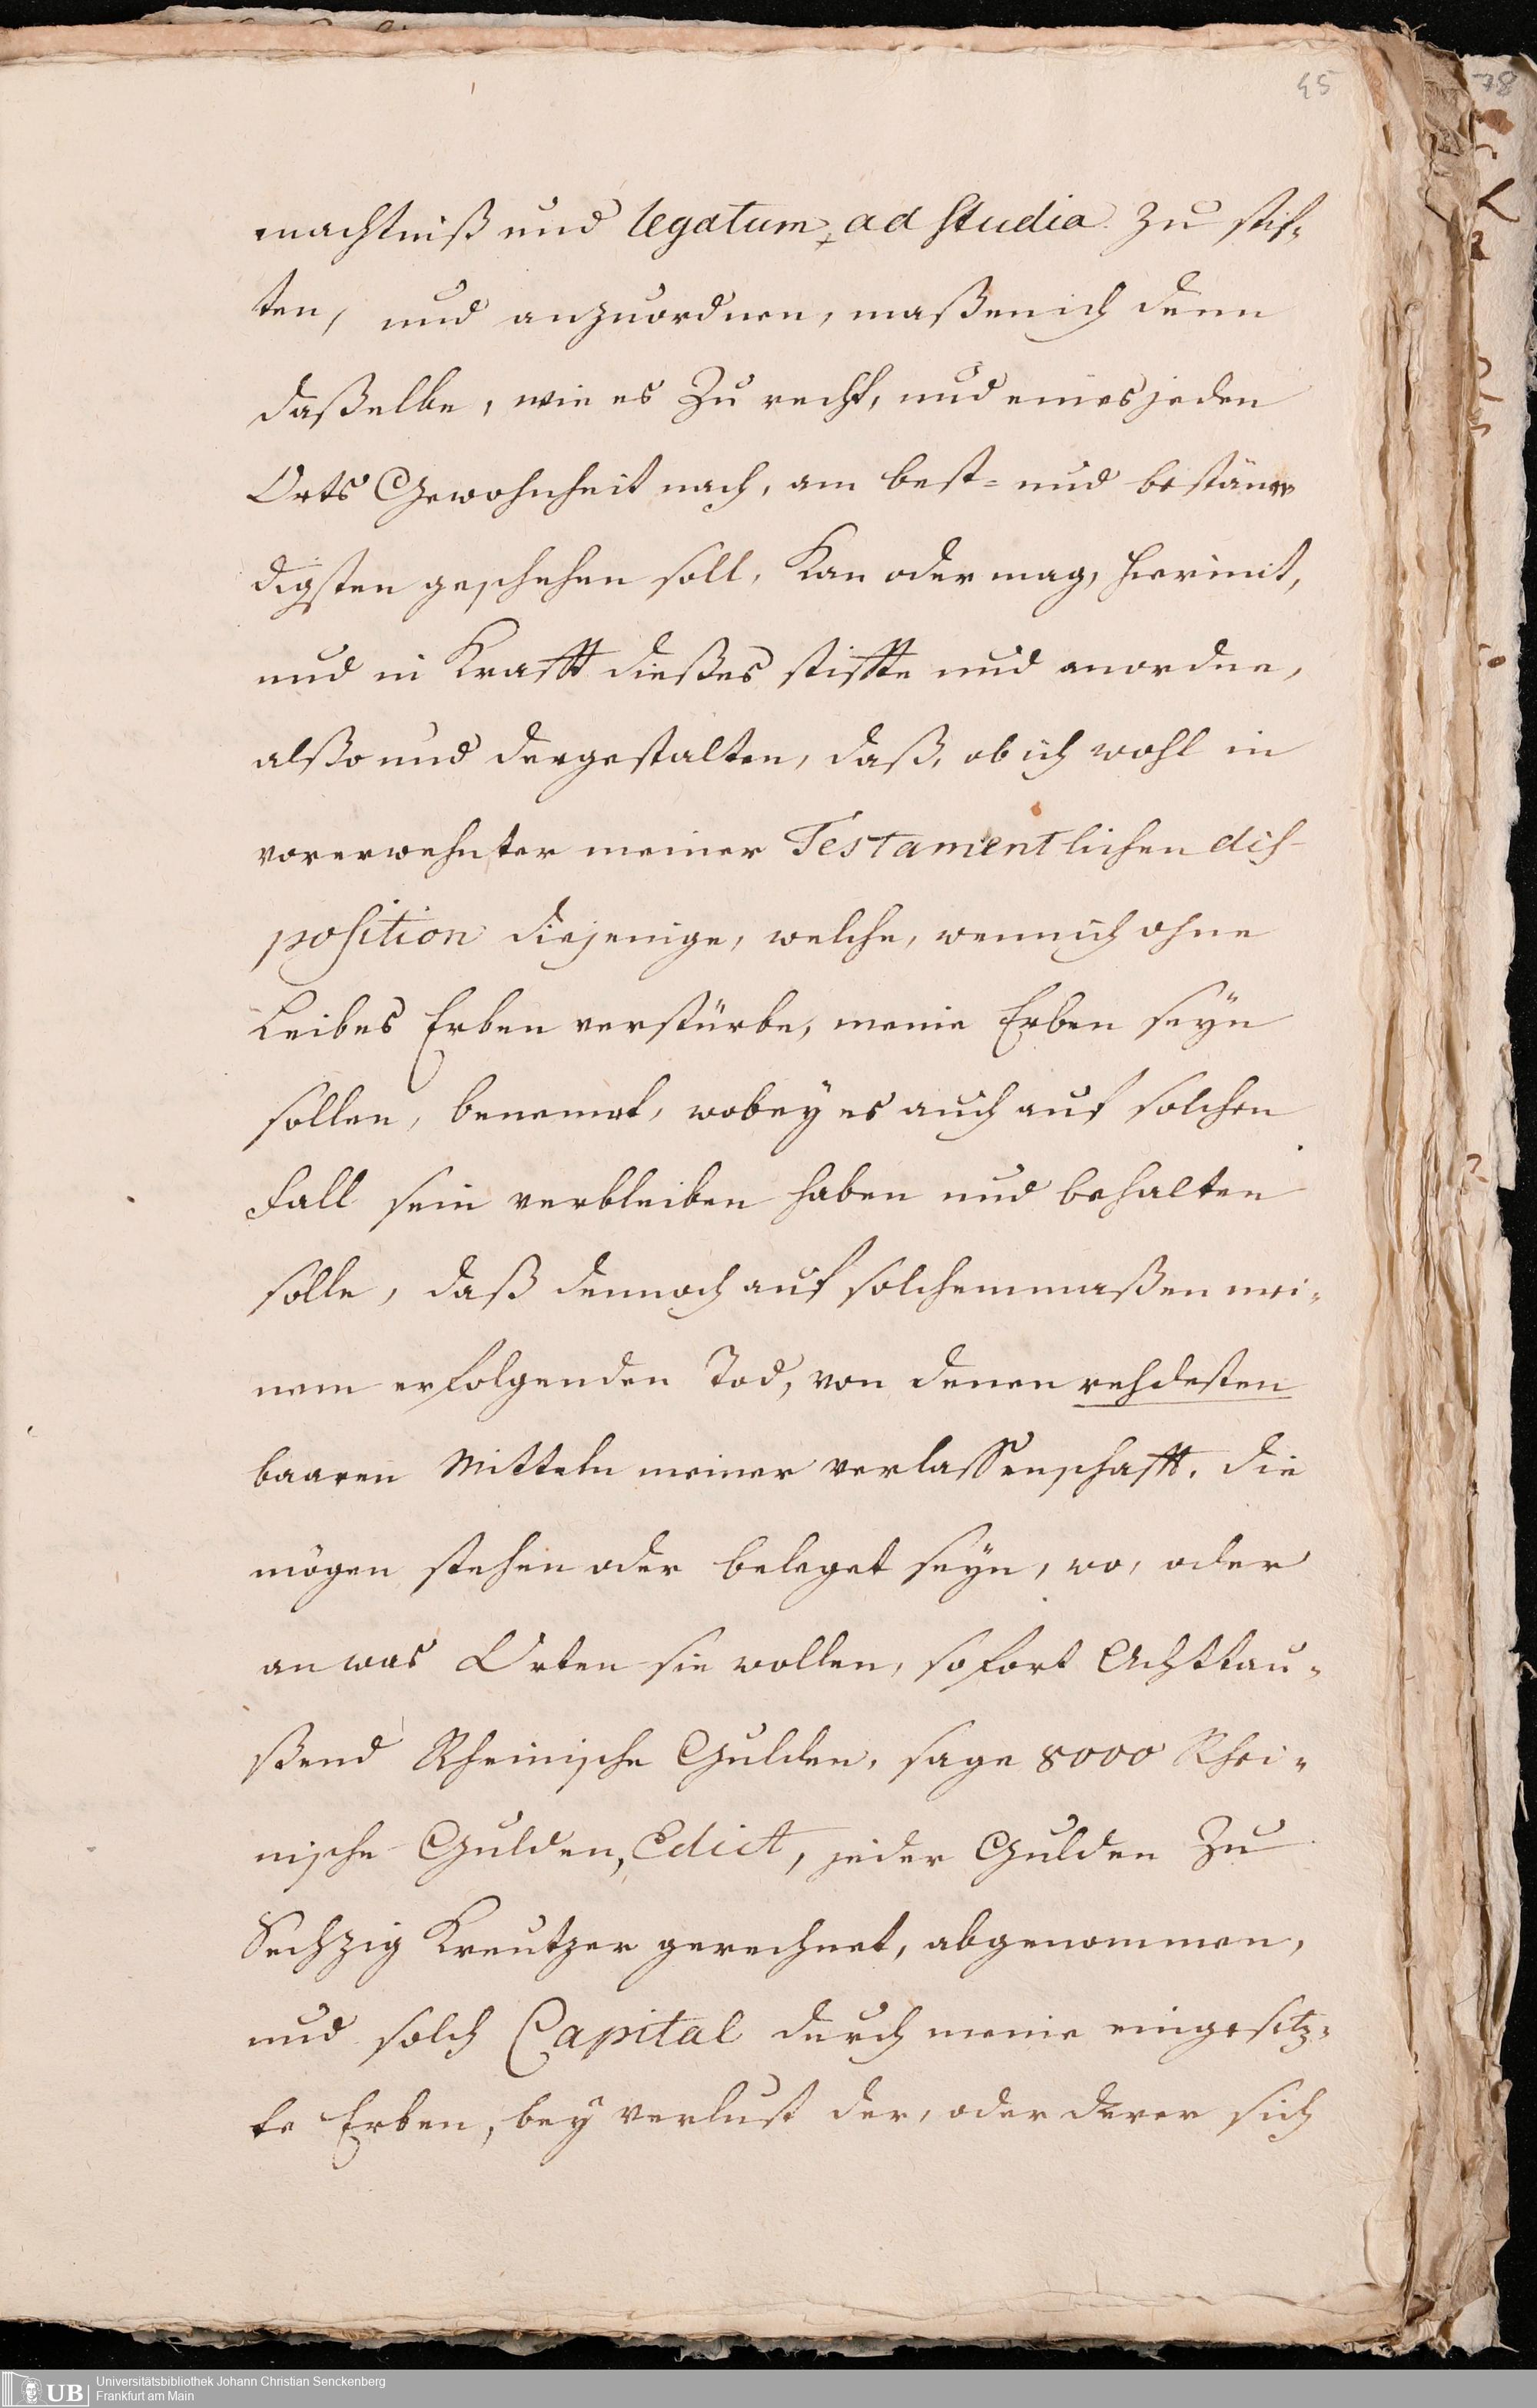 45
78
machtniß und legatum, ad Studia zu stif-
ten, und anzuordnen, maßen ich denn
daßelbe, wie es zu recht, und eines jeden
Orts Gewohnheit nach, am best- und bestän-
digsten geschehen soll, Kan oder mag, hiermit,
und in Krafft dießes stiffte und anordne,
alßo und dergestalten, daß, ob ich wohl in
vorerwehnter meiner Testamentlichen dis-
position diejenige, welche, wenn ich ohne
Leibes Erben verstürbe, meine Erben seyn
sollen, benennt, wobey es auch auf solchen
Fall sein verbleiben haben und behalten
solle, daß dennoch auf solchemmaßen mei-
nem erfolgenden Tod, von denen
baaren Mitteln meiner verlassenschafft, die
mögen stehen oder beleget seyn, wo, oder
an was Orten sie wollen, sofort Achttau-
ßend Rheinische Gulden, sage 8000 Rhei-
nische Gulden, Edict, jeder Gulden zu
Sechzig Kreutzer gerechnet, abgenommen,
und solch Capital durch meine eingesetz-
te Erben, bey verlust der, oder derer sich
UB
Universitätsbibliothek Johann Christian Senckenberg
Frankfurt am Main